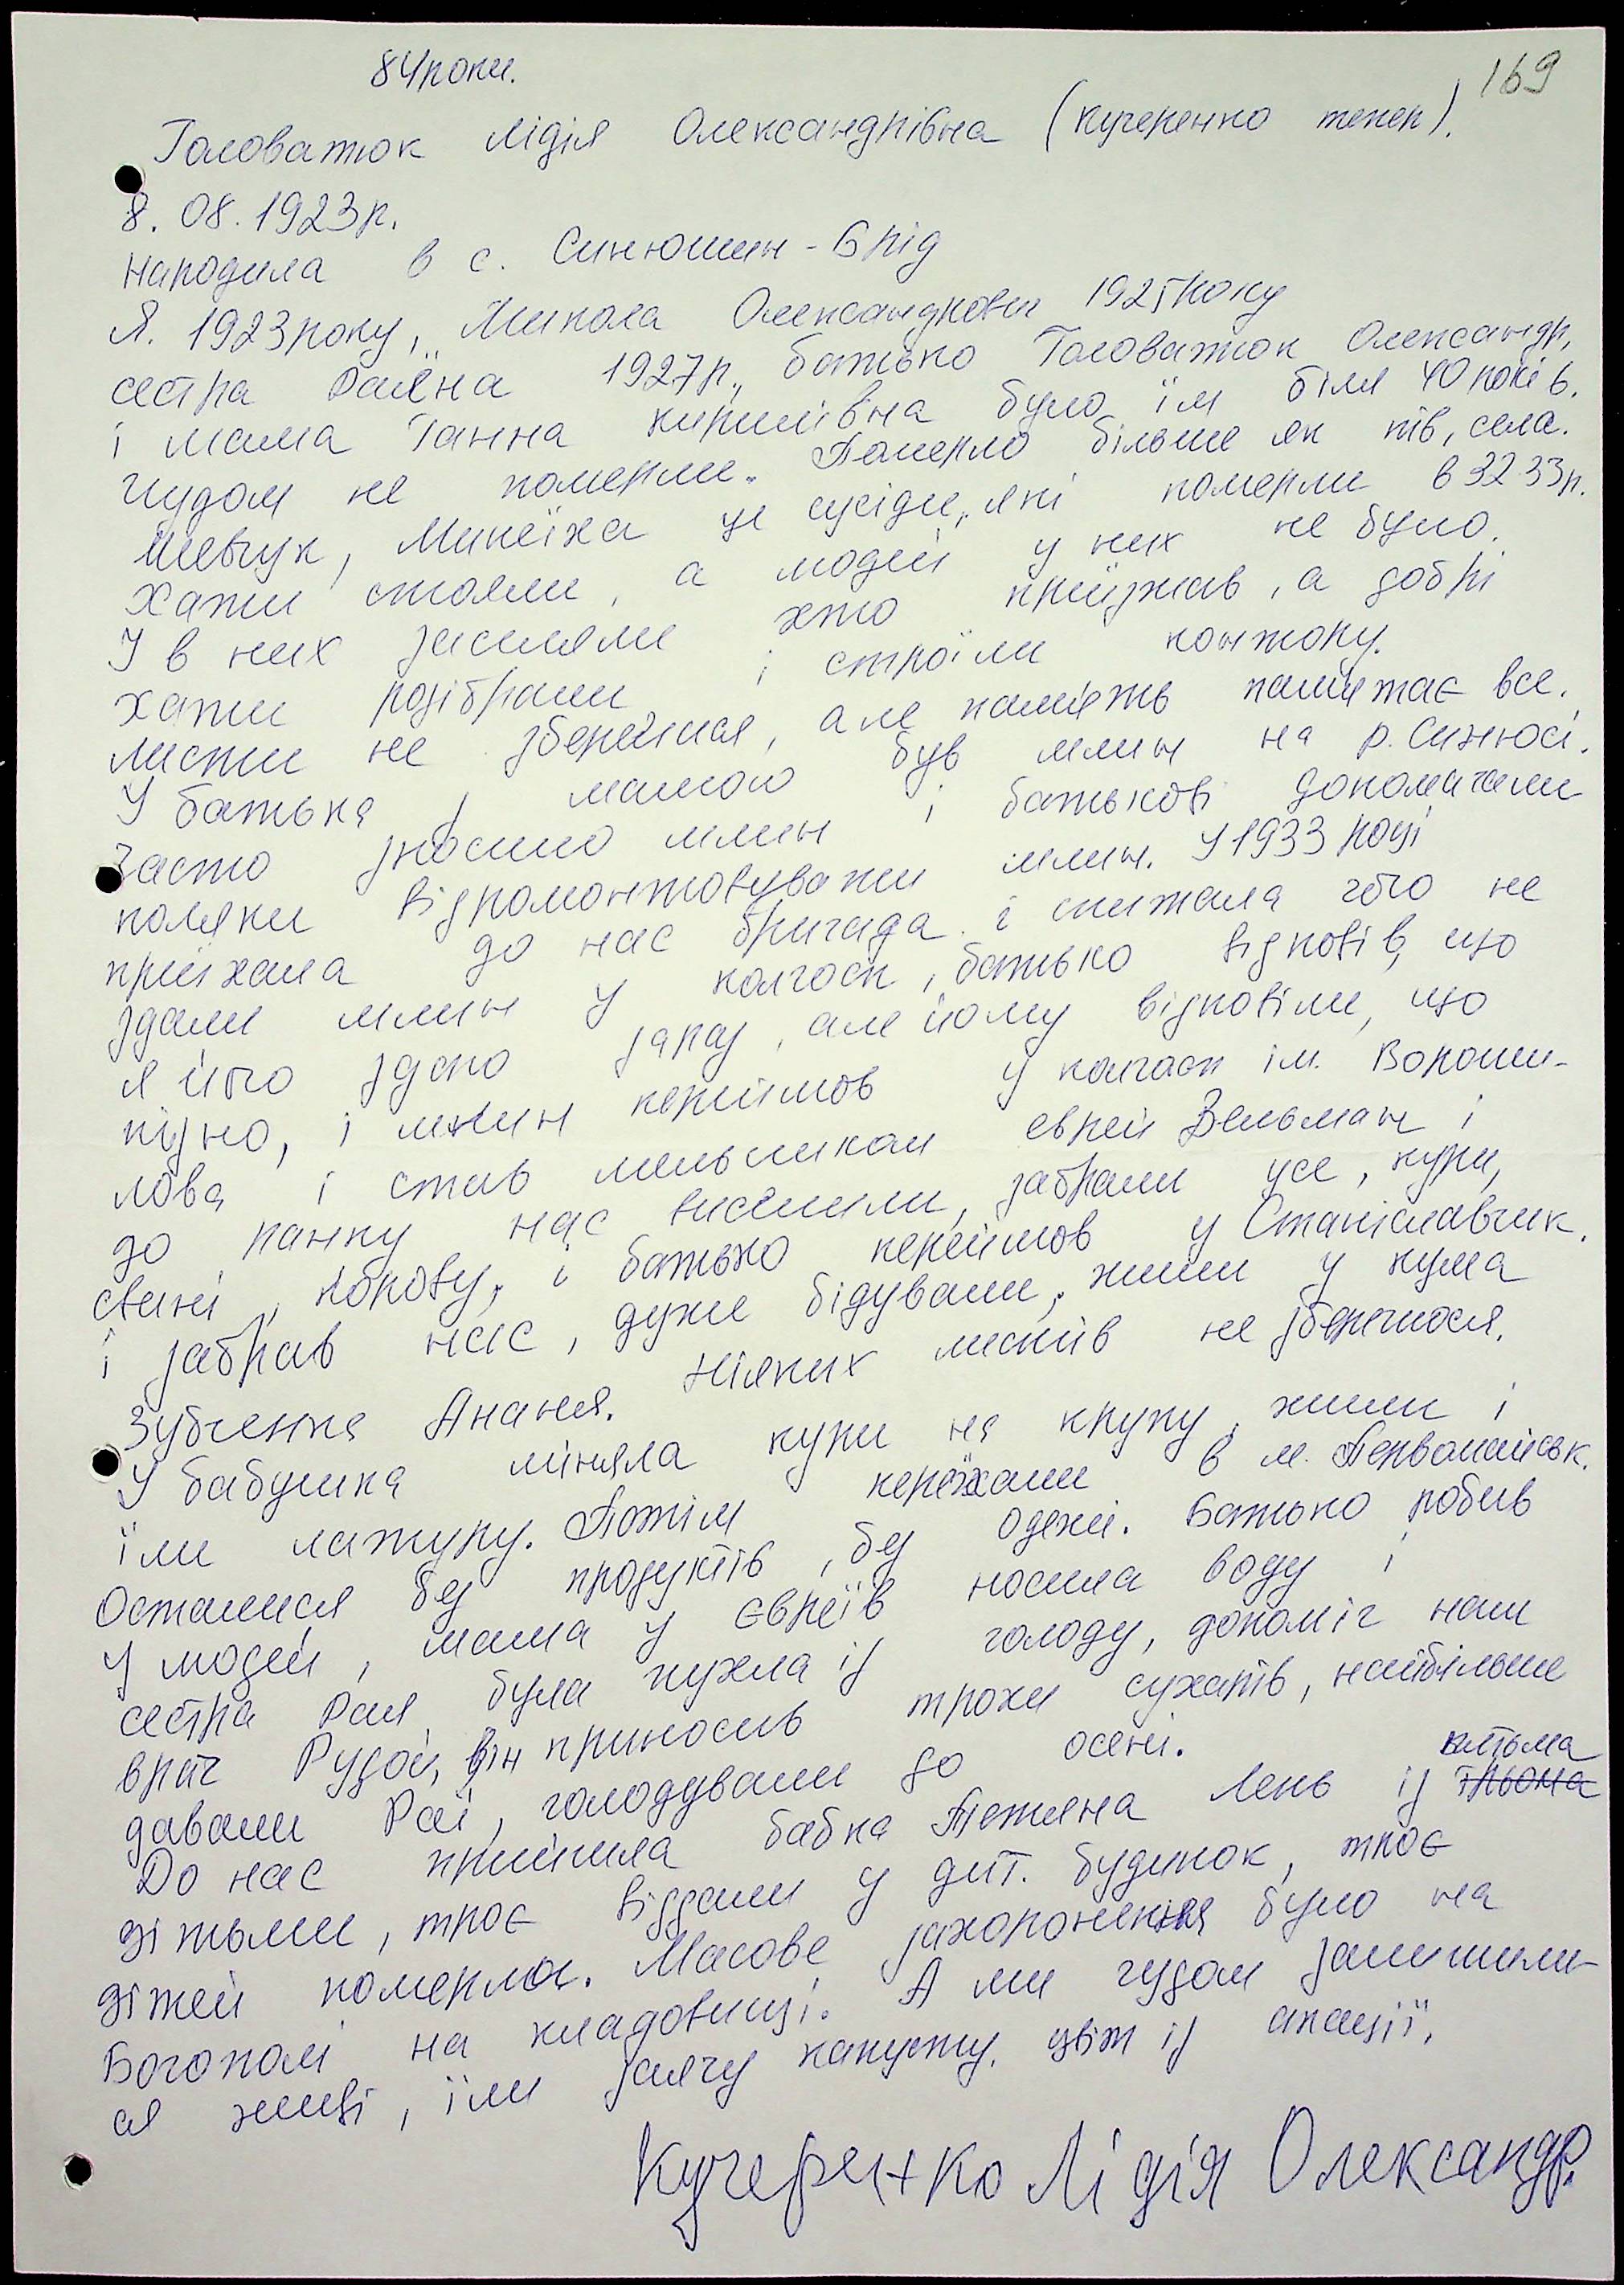 84 роки.
169
Головатюк Лідія Олександрівна (Кучеренко тепер).
8.08.1923р.
Народила в с. Синюшин-Брід
Я. 1923 року, Микола Олександрович 1925 року
сестра Раїна 1927р., батько Головатюк Олександр,
і мама Ганна Кирилівна було їм біля 40 років.
Чудом не померли. Померло більше як пів, села.
Шевчук, Микеїха це сусіди, які померли в 32 33р.
Хати стояли, а людей у них не було.
І в них заселяли хто приїзжав, а добрі
хати розібрали і строїли контору.
Листи не збереглися, але память памятає все.
У батька з мамою був млин на р. Синюсі.
Часто зносило млин і батькові допомагали
поляки відромонтовувати млин. У 1933 році
приїхала до нас бригада і спитала чого не
здали млин у колгосп, батько відповів, що
я його здаю зараз, але йому відповіли, що
пізно, і млин перейшов у колгосп ім. Вороши-
лова і став мельником еврей Зельман і
до ранку нас висилили, забрали усе, кури,
свині, корову, і батько перейшов у Станіславчик.
і забрав нас, дуже бідували, жили у кума
Зубченка Ананія. Ніяких листів не збереглося.
У бабушка міняла кури на крупу, жили і
їли латуру. Потім переїхали в м. Первомайськ.
Осталися без продуктів, без одежі. Батько робив
у людей, мама у євреїв носила воду і
сестра Рая була пухла із голоду, допоміг наш
врач Рудой, він приносив трохи сухарів, найбільше
давали Раї, голодували до осені.
До нас прийшла бабка Тетяна Лень із вітьма
дітьми, троє віддали у дит. будинок, троє
дітей померло. Масове захоронення було на
Богополі на кладовищі. А ми чудом залишили-
ся живі, їли заячу капусту, цвіт із акації.
Кучеренко Лідія Олександр.